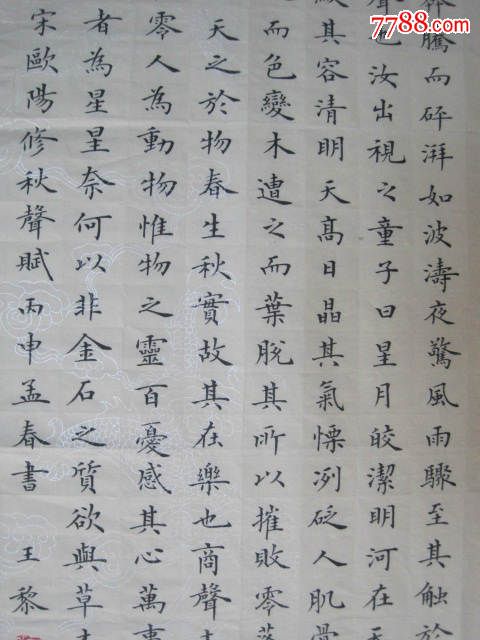 騰而砰湃如波濤夜驚風雨驟至其觸於
聲也汝出視之童子曰星月皎潔明河在
其容清明天高日晶其氣慄冽砭人肌骨
而色變木遭之而葉脫其所以摧敗零落
天之於物春生秋實故其在樂也商聲
零人為動物惟物之靈百憂感其心萬事
者為星星奈何以非金石之質欲與草
宋歐陽修秋聲賦丙申孟春書 王黎
7788.com